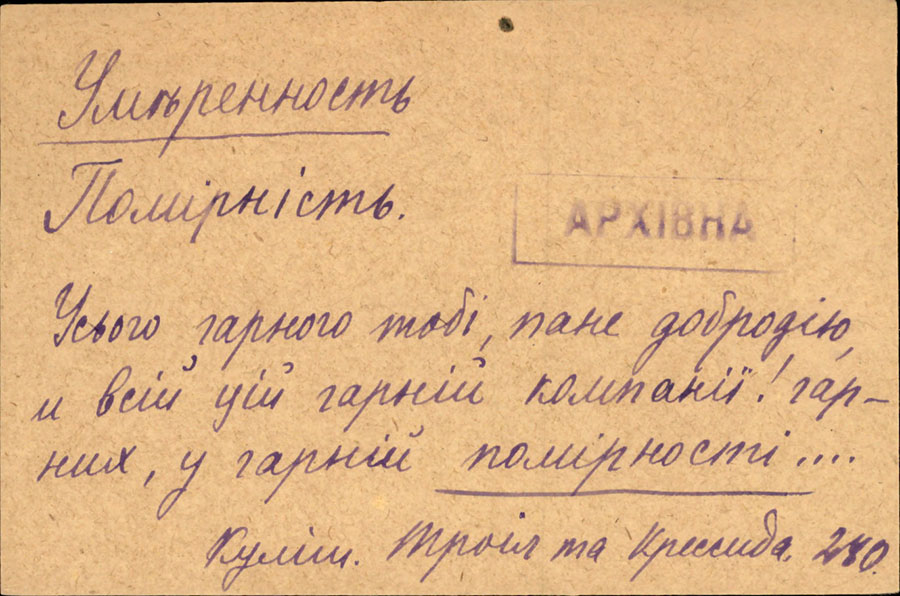 Умѣренность
Помірність.
АРХІВНА
Усього гарного тобі, пане добродію,
и всій цій гарній компанії! гар-
них, у гарній помірності....
Куліш. Троіл та Крессида. 240.